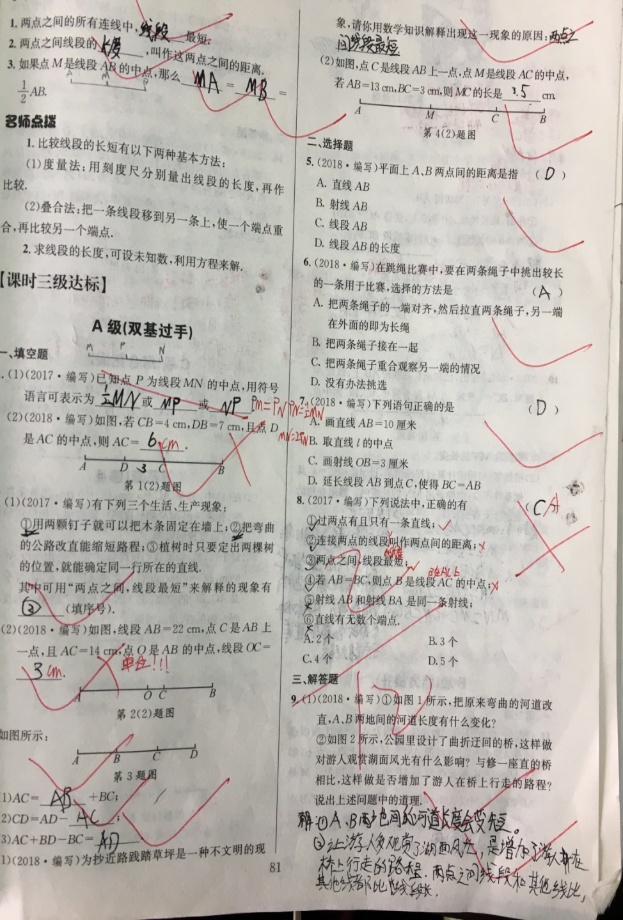 1. 两点之间的所有连线中,线段最短.
2. 两点之间线段的长度,叫作这两点之间的距离.
3. 如果点 M 是线段 AB 的中点,那么 MA = MB =
1/2 AB.
A M B
名师点拨
1. 比较线段的长短有以下两种基本方法:
(1)度量法:用刻度尺分别量出线段的长度,再作
比较.
(2)叠合法:把一条线段移到另一条上,使一个端点重
合,再比较另一个端点.
2. 求线段的长度,可设未知数,利用方程来解.
【课时三级达标】
A 级(双基过手)
M P N
一、填空题
.(1)(2017·编写)已知点 P 为线段 MN 的中点,用符号
语言可表示为 ½MN 或 MP 或 NP PM=PN PN=½MN
(2)(2018·编写)如图,若 CB=4 cm,DB=7 cm,且点 D
是 AC 的中点,则 AC= 6cm .
A D 3 C B
第 1(2)题图
(1)(2017·编写)有下列三个生活、生产现象:
①用两颗钉子就可以把木条固定在墙上;②把弯曲
的公路改直能缩短路程;③植树时只要定出两棵树
的位置,就能确定同一行所在的直线.
其中可用“两点之间,线段最短”来解释的现象有
② (填序号).
(2)(2018·编写)如图,线段 AB=22 cm,点 C 是 AB 上
一点,且 AC=14 cm,点 O 是 AB 的中点,线段 OC=
3cm. 单位!!!
A O C B
第 2(2)题图
如图所示:
A B C D
第 3 题图
1)AC= AB +BC;
2)CD=AD- AC ;
3)AC+BD-BC= AD
1)(2018·编写)为抄近路践踏草坪是一种不文明的现
象,请你用数学知识解释出现这一现象的原因:两点之
间线段最短
(2)如图,点 C 是线段 AB 上一点,点 M 是线段 AC 的中点,
若 AB=13 cm,BC=3 cm,则 MC 的长是 3.5 cm
A M C B
第 4(2)题图
二、选择题
5. (2018·编写)平面上 A、B 两点间的距离是指 ( D )
A. 直线 AB
B. 射线 AB
C. 线段 AB
D. 线段 AB 的长度
6. (2018·编写)在跳绳比赛中,要在两条绳子中挑出较长
的一条用于比赛,选择的方法是 ( A )
A. 把两条绳子的一端对齐,然后拉直两条绳子,另一端
在外面的即为长绳
B. 把两条绳子接在一起
C. 把两条绳子重合观察另一端的情况
D. 没有办法挑选
7. (2018·编写)下列语句正确的是 ( D )
A. 画直线 AB=10 厘米
B. 取直线 l 的中点
C. 画射线 OB=3 厘米
D. 延长线段 AB 到点 C,使得 BC=AB
8. (2017·编写)下列说法中,正确的有 ( C A
①过两点有且只有一条直线;
②连接两点的线段叫作两点间的距离;
③两点之间,线段最短;
④若 AB=BC,则点 B 是线段 AC 的中点;
⑤射线 AB 和射线 BA 是同一条射线;
⑥直线有无数个端点.
A. 2 个 B. 3 个
C. 4 个 D. 5 个
三、解答题
9. (1)(2018·编写)①如图 1 所示,把原来弯曲的河道改
直,A、B 两地间的河道长度有什么变化?
②如图 2 所示,公园里设计了曲折迂回的桥,这样做
对游人观赏湖面风光有什么影响? 与修一座直的桥
相比,这样做是否增加了游人在桥上行走的路程?
说出上述问题中的道理.
解:① A、B两地间的河道长度会变短。
②让游人多观赏了湖面风光,是增加了游人在
桥上行走的路程,两点之间线段和其他线比,
81